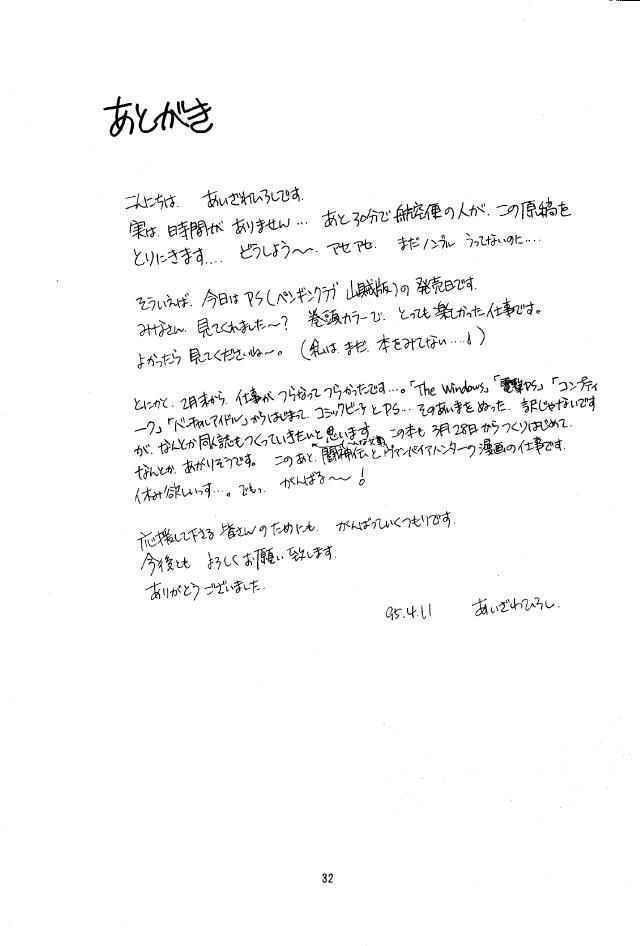 あとがき
こんにちは あいざわひろしです.
実は 時間が ありません… あと30分で航空便の人が、この原稿を
とりにきます…. どうしよう〜. アセアセ. まだノンブル うってないのに….
そういえば、今日はPS(ペンギンクラブ 山賊版)の発売日です.
みなさん、見てくれました〜? 巻頭カラーで、とっても楽しかった仕事です。
よかったら見てくださいね〜。(私は、まだ、本をみてない….!)
とにかく、2月末から、仕事がつらなってつらかったです…。「The Windows」「電撃PS」「コンプティ
ーク」「バーチャルアイドル」からはじまって コミックビーチとPS… そのあいまをぬった、訳じゃないです
が、なんとか同人誌もつくっていきたいと思います この本も3月28日からつくりはじめて、
なんとか、あがりそうです。 このあと、闘神伝とヴァンパイアハンターの漫画の仕事です.
休み欲しいっす…。でもっ がんばる〜!
応援して下さる皆さんのためにも がんばっていくつもりです.
今後とも よろしくお願い致します.
ありがとうございました.
95.4.11 あいざわひろし.
32